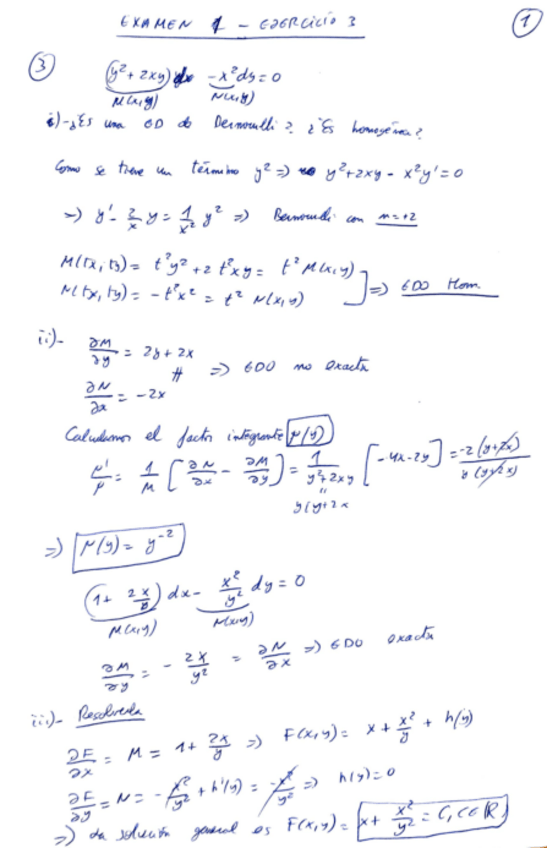 EXAMEN 1 - EJERCICIO 3
1
3 (y² + 2xy) dx - x² dy = 0
M(x,y) N(x,y)
i)- ¿Es una ED de Bernoulli? ¿Es homogénea?
Como se tiene un término y² => y² + 2xy - x²y' = 0
-> y' - 2/x y = 1/x² y² => Bernoulli con n = +2
M(tx, ty) = t²y² + 2t²xy = t² M(x,y)
N(tx, ty) = -t²x² = t² N(x,y) => EDO Hom.
ii)- ∂M/∂y = 2y + 2x
≠ => EDO no exacta
∂N/∂x = -2x
Calculamos el factor integrante μ(y)
μ'/μ = 1/M [∂N/∂x - ∂M/∂y] = 1/(y² + 2xy) [-4x - 2y] = -2(y+2x)/y(y+2x)
"
y(y+2x
=> μ(y) = y⁻²
(1 + 2x/y) dx - x²/y² dy = 0
M(x,y) N(x,y)
∂M/∂y = - 2x/y² = ∂N/∂x => EDO exacta
iii)- Resolverla
∂F/∂x = M = 1 + 2x/y => F(x,y) = x + x²/y + h(y)
∂F/∂y = N = - x²/y² + h'(y) = -x²/y² => h(y) = 0
=> la solución general es F(x,y) = x + x²/y² = C, C∈ℝ